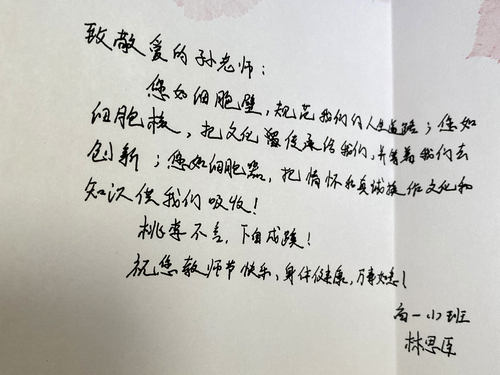 致敬爱的孙老师：
您如细胞壁，规范我们的人生道路；您如
细胞核，把文化遗传承给我们，并带着我们去
创新；您如细胞器，把情怀和真诚操作文化和
知识供我们吸收！
桃李不言，下自成蹊！
祝您教师节快乐，身体健康，万事如意！
高一小班
林思臣